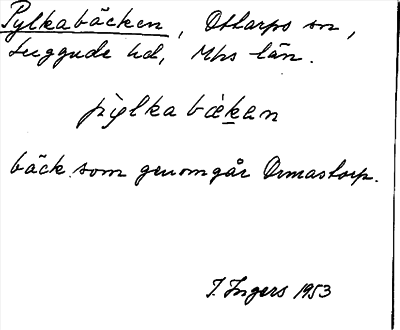 Pylkabäcken, Ottarps sn,
Luggude hd, Mhs län.
pìylka bǽkan
bäck som genomgår Ormastorp.
I. Ingers 1953